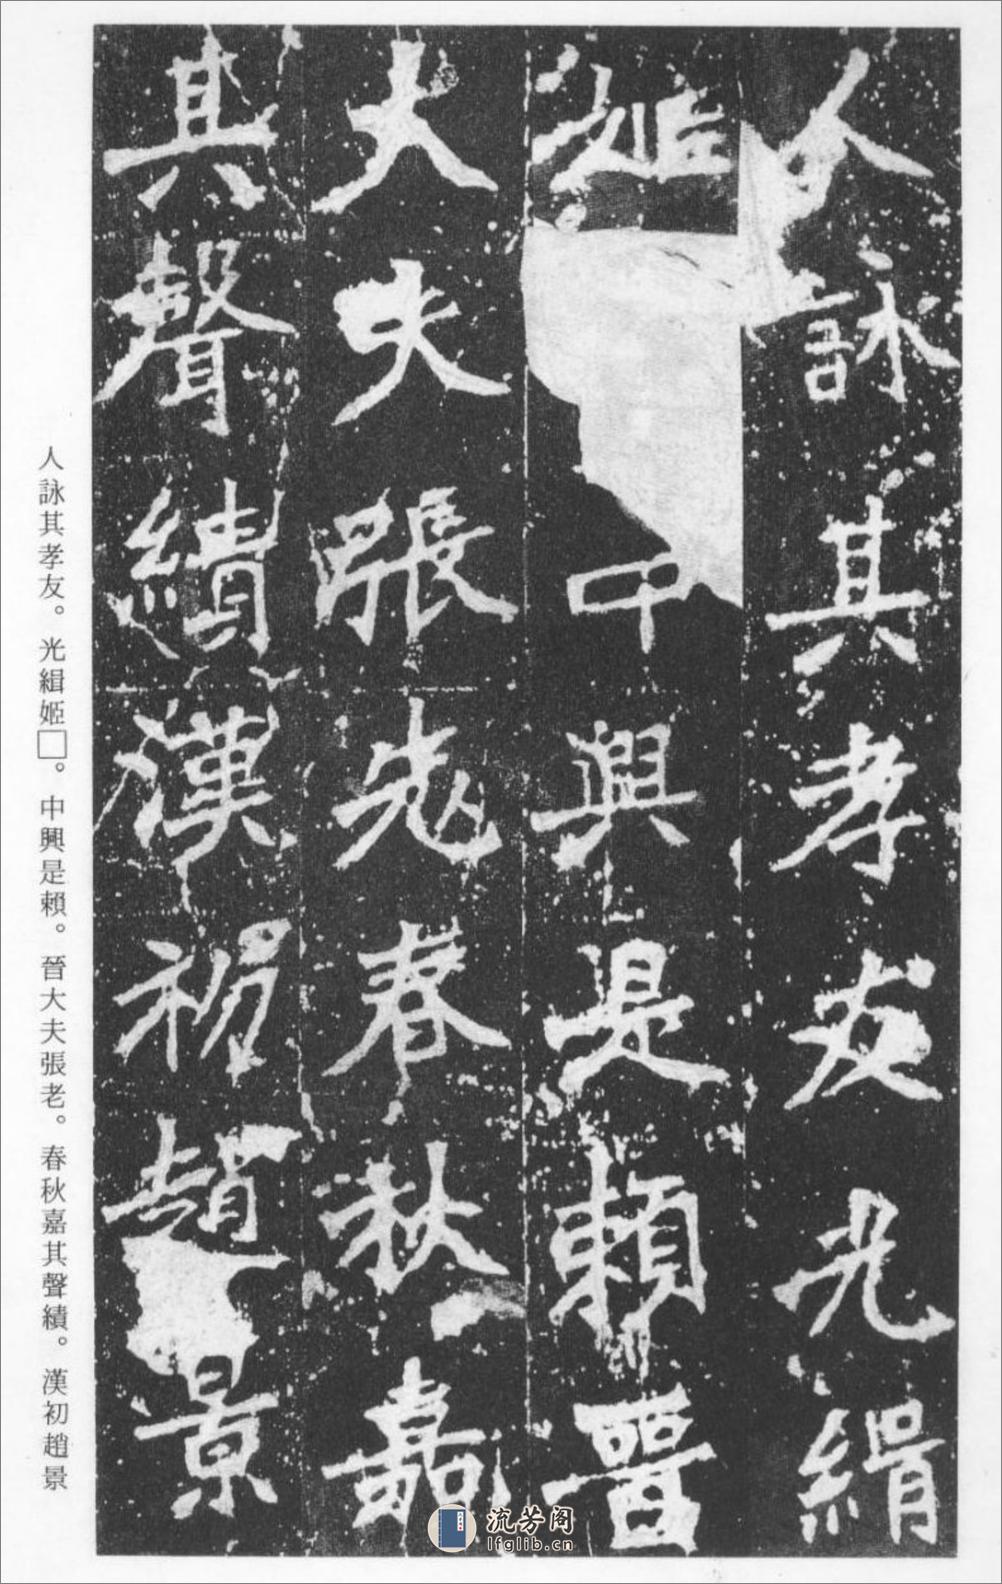 人詠其孝友光緝
姬中興是賴晉
大夫張老春秋嘉
其聲績漢初趙景
人詠其孝友。光緝姬□。中興是賴。晉大夫張老。春秋嘉其聲績。漢初趙景
流芳阁
lfglib.cn